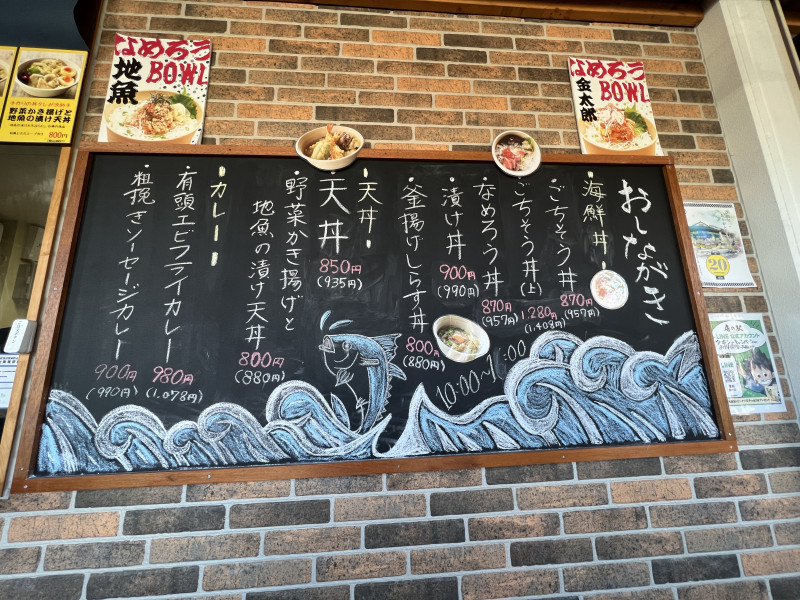 なめろう
BOWL
地魚
なめろう
BOWL
金太郎
野菜かき揚げと
地魚の漬け天丼
800円
おしながき
・海鮮丼・
・ごちそう丼
870円
(957円)
・ごちそう丼(上)
1,280円
(1,408円)
・なめろう丼
870円
(957円)
・漬け丼
900円
(990円)
・釜揚げしらす丼
800円
(880円)
・天丼・
・天丼
850円
(935円)
・野菜かき揚げと
地魚の漬け天丼
800円
(880円)
・カレー・
・有頭エビフライカレー
980円
(1,078円)
・粗挽きソーセージカレー
900円
(990円)
10:00~16:00
20
LINE 公式アカウント